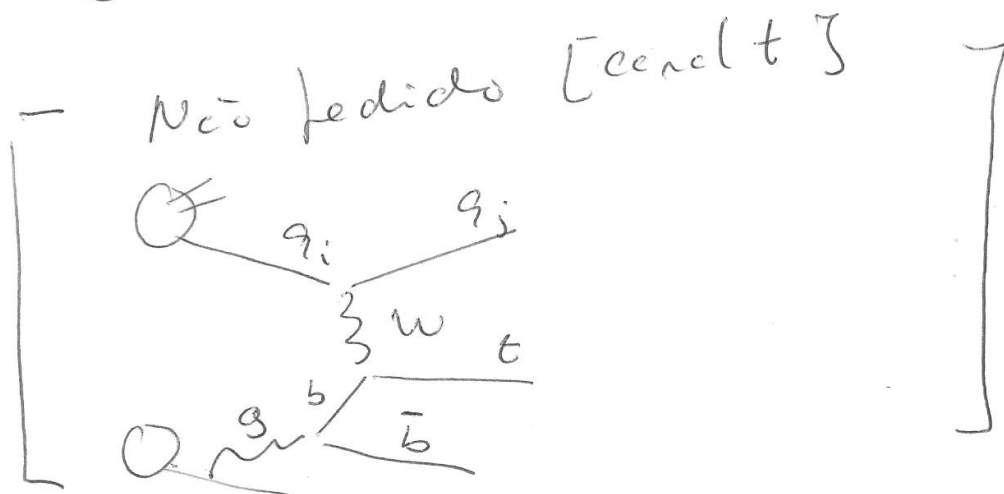 - Não pedido [canal t]
q_i
q_j
W
t
b
g
b̄